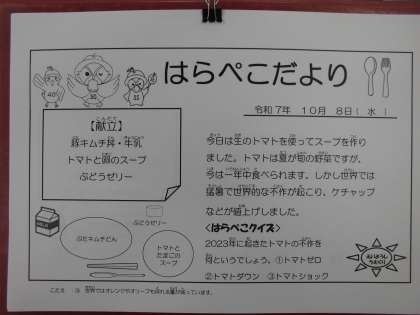 はらぺこだより
令和7年 10月 8日( 水 )
【献立】
豚キムチ丼・牛乳
トマトと卵のスープ
ぶどうゼリー
今日は生のトマトを使ってスープを作り
ました。トマトは夏が旬の野菜ですが、
今は一年中食べられます。しかし世界では
猛暑で世界的な不作が起こり、ケチャップ
などが値上げしました。
<はらぺこクイズ>
2023年に起きたトマトの不作を
何というでしょう。①トマトゼロ
②トマトダウン ③トマトショック
ぶどうゼリー
ぶたキムチどん
トマトと
たまごの
スープ
こたえ ③ 世界ではオレンジやオリーブも